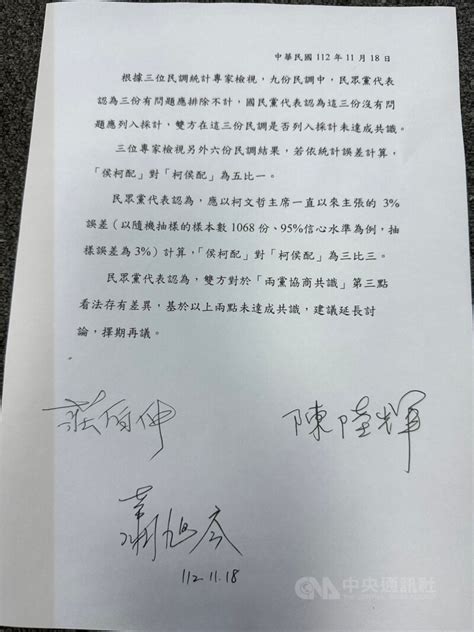 中華民國 112 年 11 月 18 日
根據三位民調統計專家檢視，九份民調中，民眾黨代表
認為三份有問題應排除不計，國民黨代表認為這三份沒有問
題應列入採計，雙方在這三份民調是否列入採計未達成共識。
三位專家檢視另外六份民調結果，若依統計誤差計算，
「侯柯配」對「柯侯配」為五比一。
民眾黨代表認為，應以柯文哲主席一直以來主張的 3%
誤差（以隨機抽樣的樣本數 1068 份、95%信心水準為例，抽
樣誤差為 3%）計算，「侯柯配」對「柯侯配」為三比三。
民眾黨代表認為，雙方對於「兩黨協商共識」第三點
看法存有差異，基於以上兩點未達成共識，建議延長討
論，擇期再議。
莊伯仲
陳陸輝
蕭旭岑
112.11.18
CNA 中央通訊社